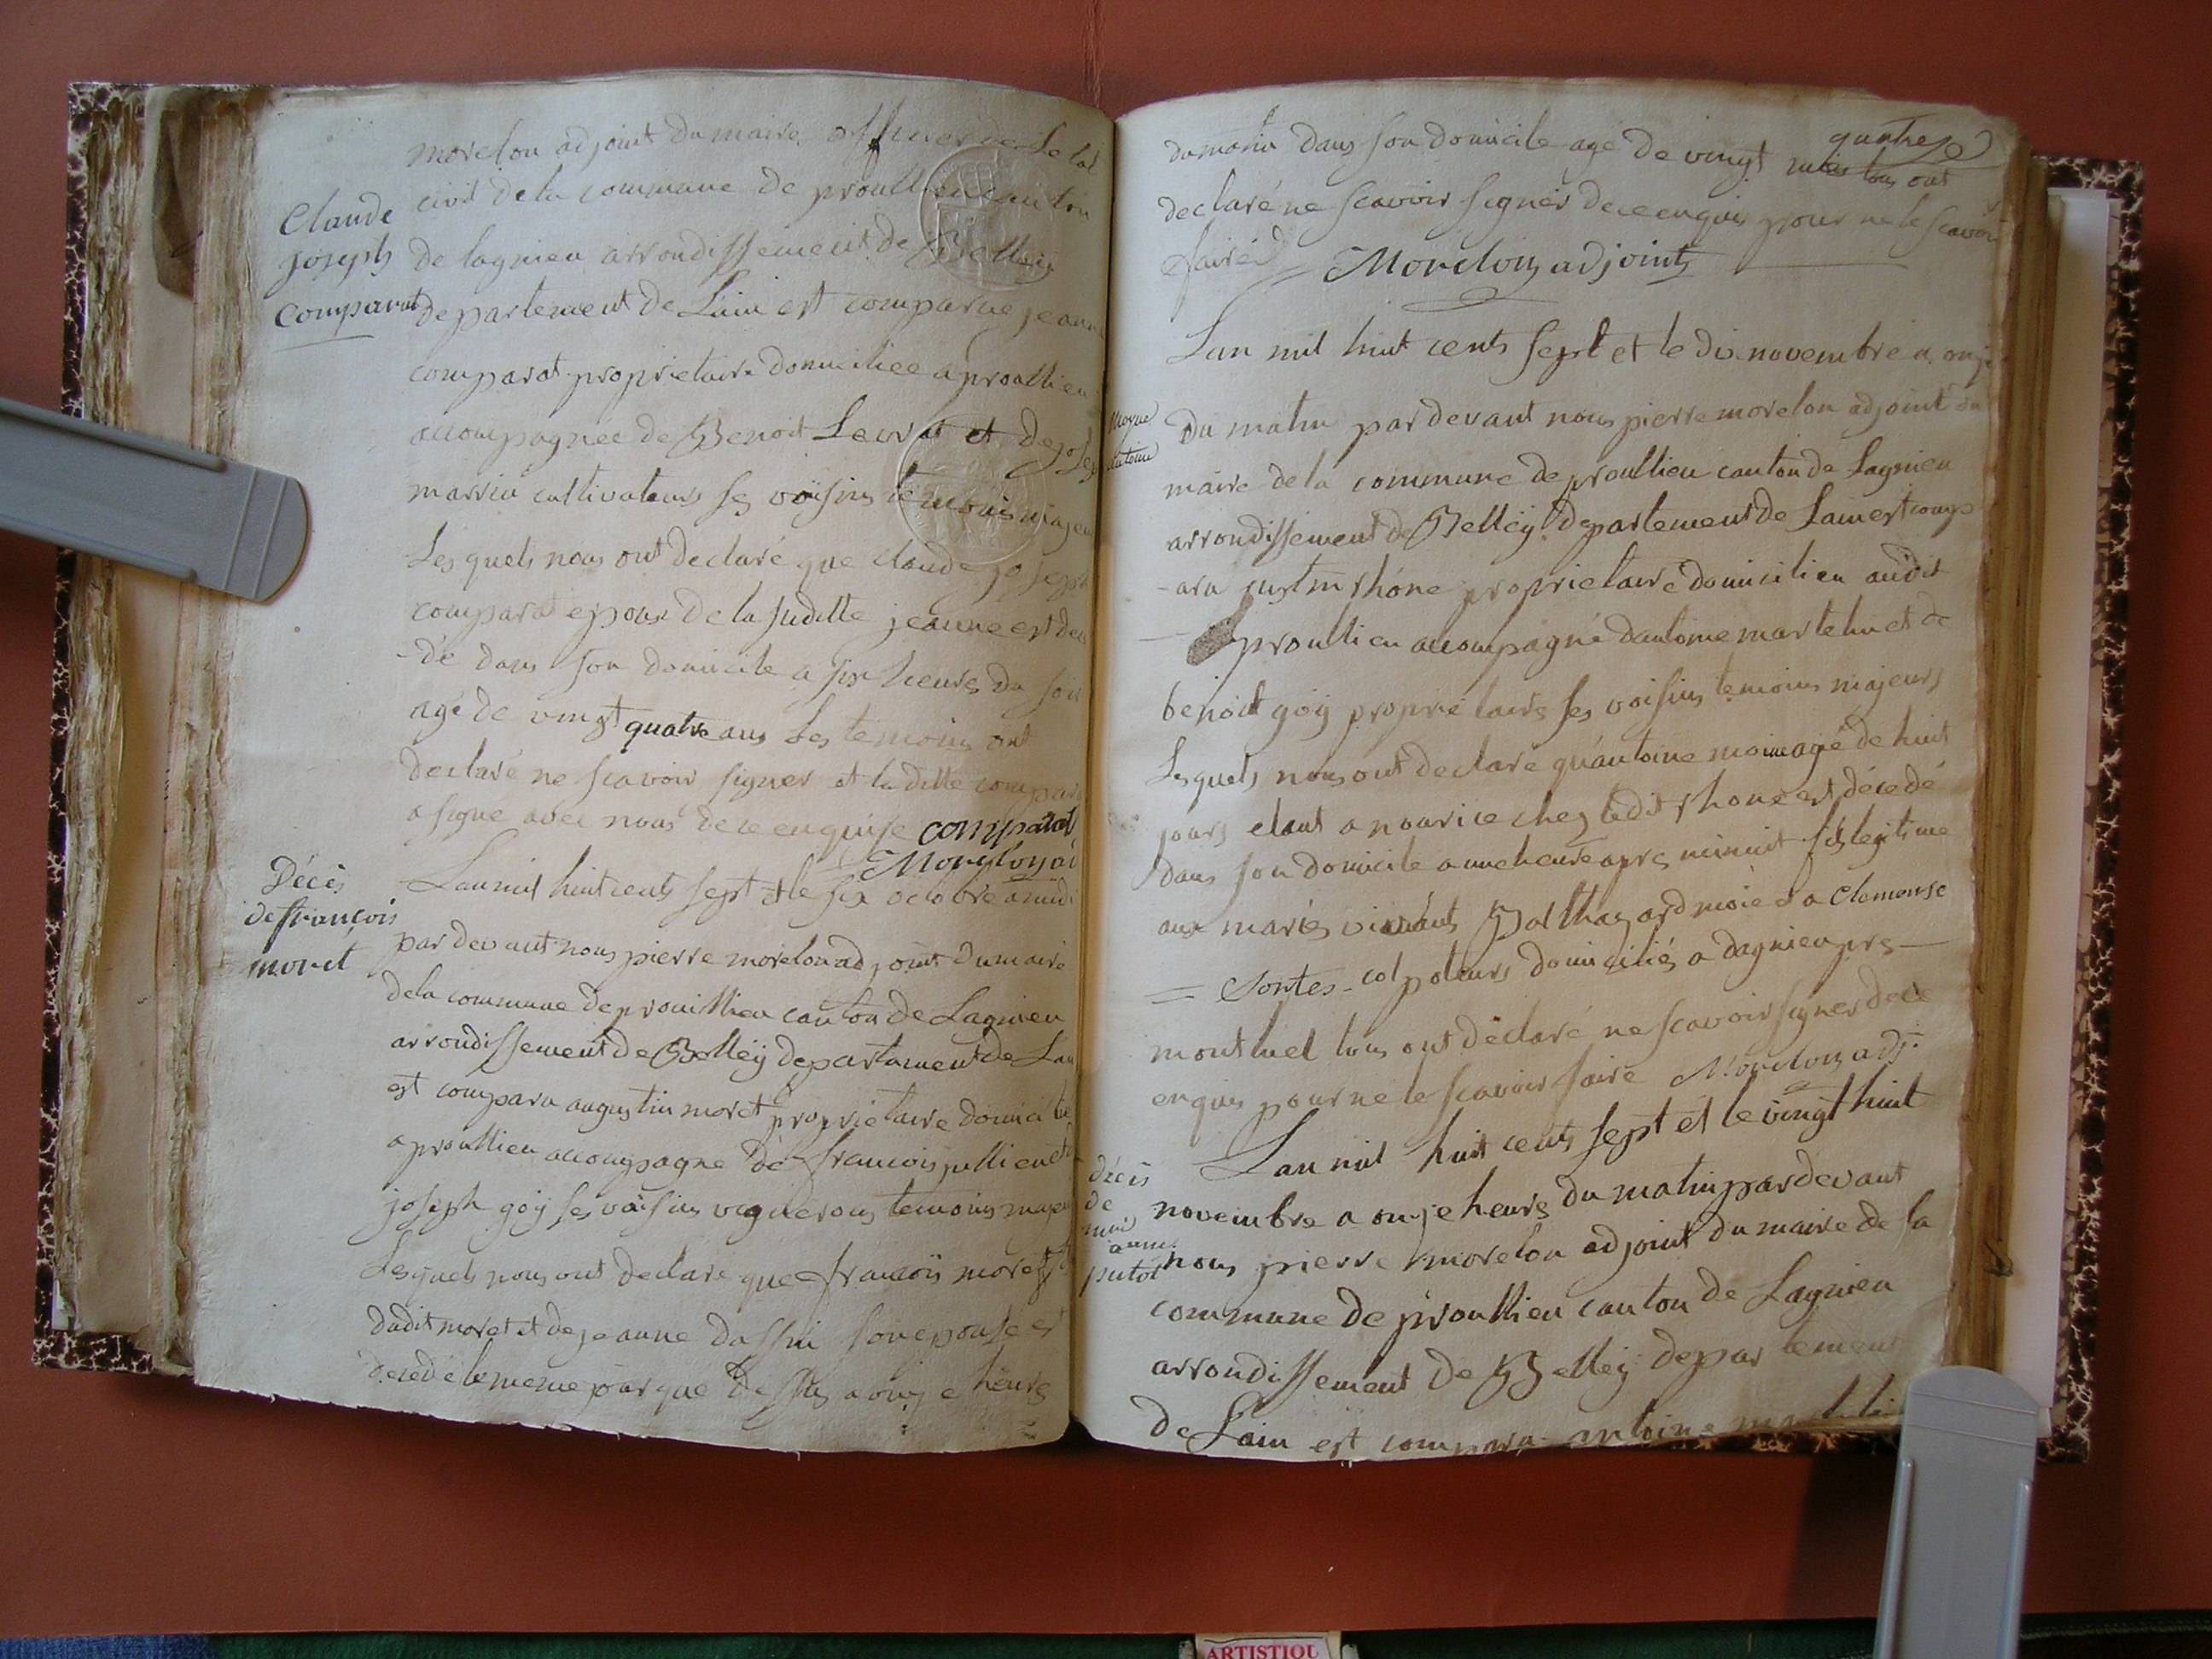 morelon adjoint du maire officier de le tat
civil de la commune de proullieu canton
Claude
Joseph
Comparat
de lagnieu arrondissement de Belleÿ
departement de Lain est comparue jeanne
comparat proprietaire domiciliée a proullieu
accompagnée de Benoit Levrat et de josep
cultivateurs ses voisins temoins majeu
Les quels nous ont declaré que claude joseph
comparat epoux de la suditte jeanne est dece
-dé dans son domicile a six heures du soir
agé de vingt quatre ans Les temoins ont
declaré ne scavoir signer et la ditte compara
a signé avec nous de ce enquise comparat
Morelon ad
Décès
de françois
moret
Lan mil huit cents sept et le six octobre a midi
par devant nous pierre morelon adjoint du maire
de la commune de proullieu canton de Lagnieu
arrondissement de Belleÿ departement de Lain
est comparu augustin moret proprietaire domicilié
a proullieu accompagné de françois jullien et
joseph goÿ ses voisins vignerons temoins majeu
Lesquels nous ont declaré que françois moret
dudit moret et de jeanne son epouse est
decedé le meme jour que dessus a onze heures
du matin dans son domicile agé de vingt quatre
mois tous ont
declaré ne scavoir signer de ce enquis pour ne le scavoir
faire Morelon adjoint
Lan mil huit cents sept et le dix novembre a onze
Moyne
antoine
du matin par devant nous pierre morelon adjoint du
maire de la commune de proullieu canton de Lagnieu
arrondissement de Belleÿ departement de Lain est comp
-aru justin rhône proprietaire domicilieu audit
proullieu accompagné dantoine martelin et de
benoit goÿ proprietairs ses voisins temoins majeurs
Lesquels nous ont declaré quantoine moine agé de huit
jours etant a nourice chez ledit rhone est décedé
dans son domicile a une heure apres minuit fils legitime
aux mariés vivants Balthazard moie et a Clemense
= Sontes - colpoteurs domiciliés a dagnieu prs -
montluel tous ont déclaré ne scavoir signer de ce
enquis pour ne le scavoir faire Morelon adj.
Lan mil huit cents sept et le vingt huit
décès
de
anne
putot
novembre a onze heures du matin par devant
nous pierre morelon adjoint du maire de la
commune de proullieu canton de Lagnieu
arrondissement de Belleÿ departement
de Lain est comparu antoine
ARTISTIQU